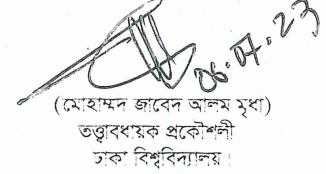 06.07.23
(মোহাম্মদ জাবেদ আলম মৃধা)
তত্ত্বাবধায়ক প্রকৌশলী
ঢাকা বিশ্ববিদ্যালয়।